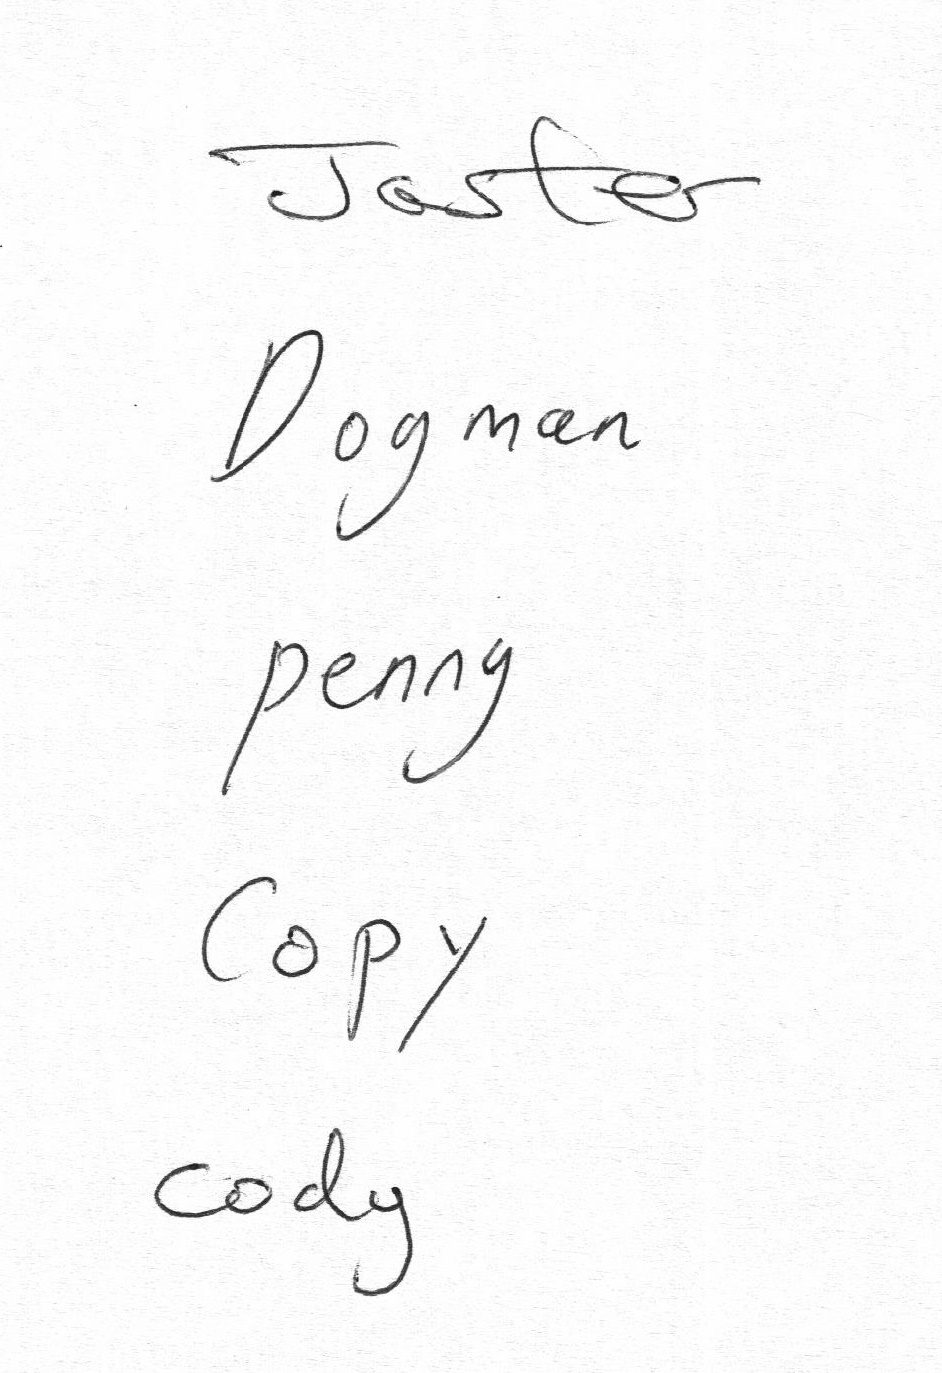 Joster
Dogman
penny
Copy
cody